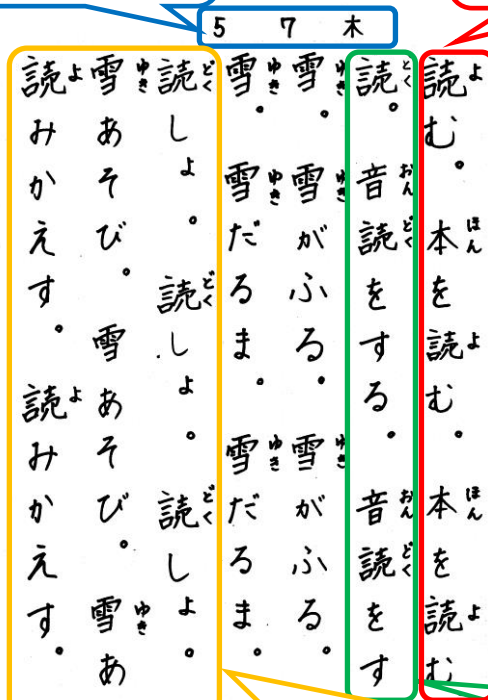 5 7 木
読む。本を読む。本を読む
読。音読をする。音読をす
雪。雪がふる。雪がふる。
雪。雪だるま。雪だるま。
読しょ。読しょ。読しょ。
雪あそび。雪あそび。雪あ
読みかえす。読みかえす。